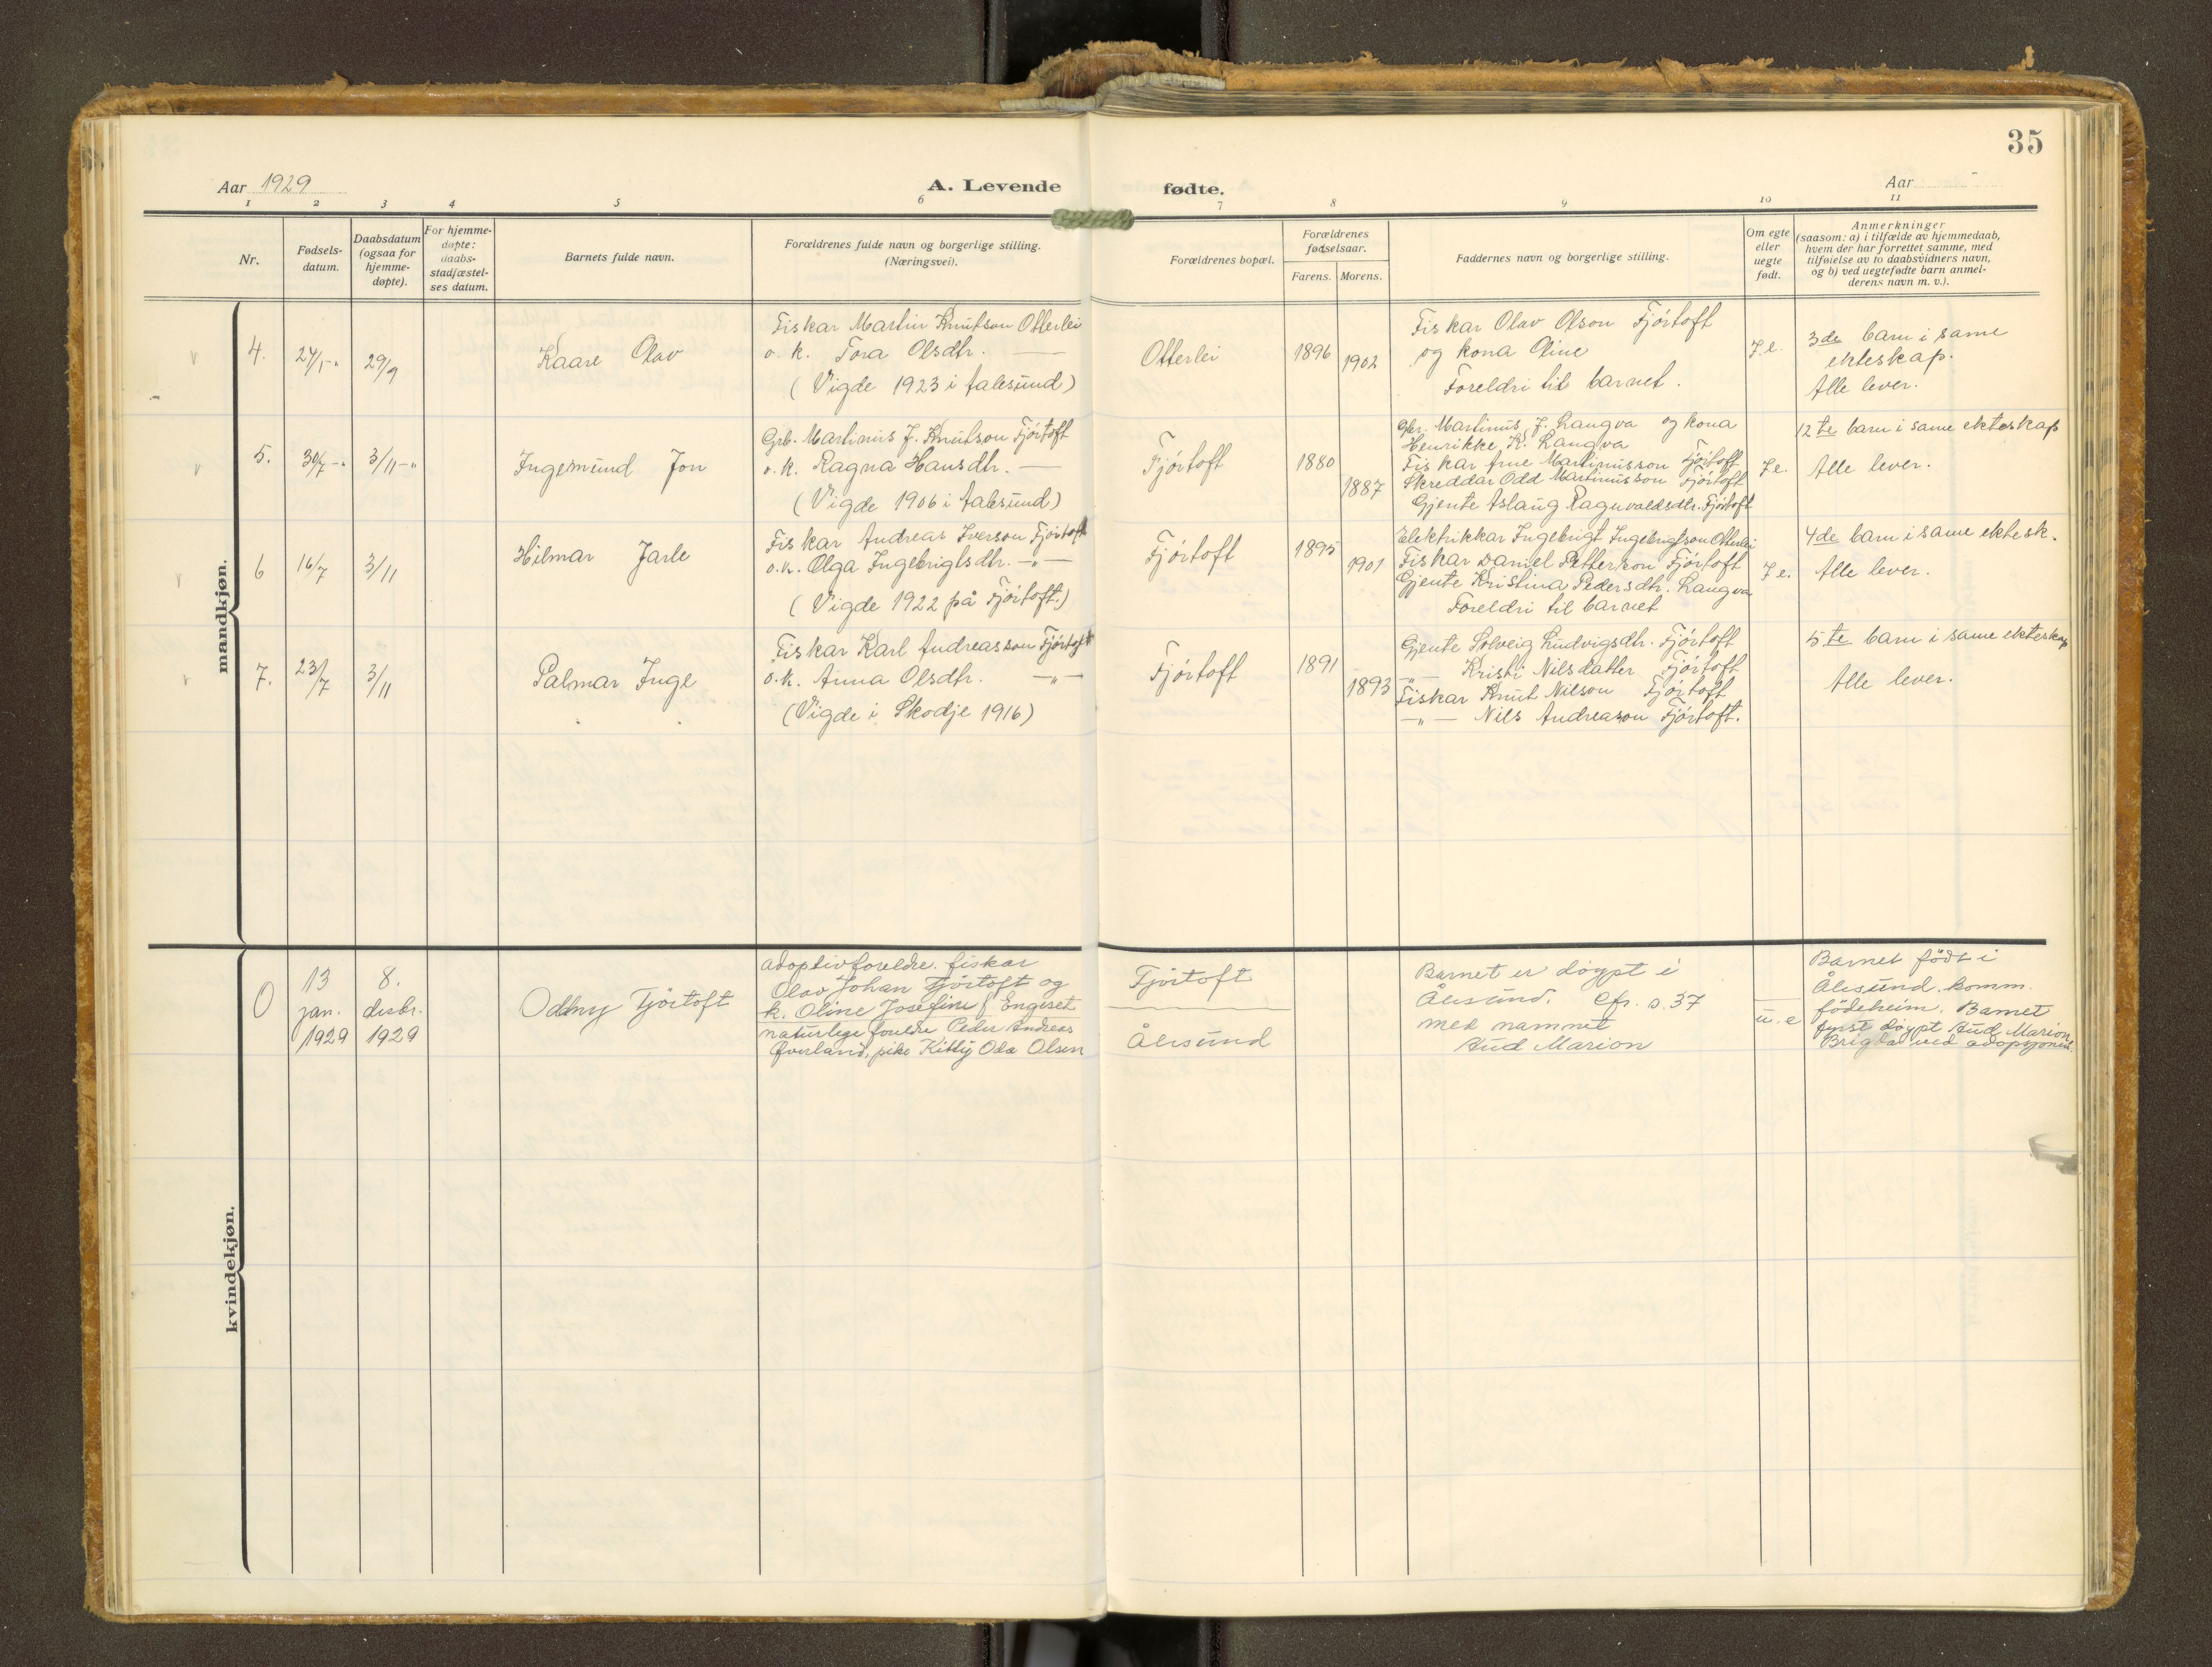 35
Aar 1929
A. Levende fødte.
Aar
1 2 3 4 5 6 7 8 9 10 11
Nr.
Fødsels-
datum.
Daabsdatum
(ogsaa for
hjemme-
døpte).
For hjemme-
døpte:
daabs-
stadfæstel-
ses datum.
Barnets fulde navn.
Forældrenes fulde navn og borgerlige stilling.
(Næringsvei).
Forældrenes bopæl.
Forældrenes
fødselsaar.
Farens. Morens.
Faddernes navn og borgerlige stilling.
Om egte
eller
uegte
født.
Anmerkninger
(saasom: a) i tilfælde av hjemmedaab,
hvem der har forrettet samme, med
tilføielse av to daabsvidners navn,
og b) ved uegtefødte barn anmel-
derens navn m. v.).
mandkjøn.
4.
29/9
Kaare Olav
Fiskar Martin Knutson Otterlei
o. k. Tora Olsdtr. —
(Vigde 1923 i Aalesund)
Otterlei
1896
1902
Fiskar Olav Olson Fjörtoft
og kona Oline
Foreldri til barnet.
J. e.
3de barn i same
ekteskap.
Alle lever.
5.
30/7 -"-
3/11 -"-
Ingemund Jon
Grb. Martinus J. Knutson Fjörtoft
o. k. Ragna Hansdtr. —
(Vigde 1906 i Aalesund)
Fjörtoft
1880
1887
Gbr. Martinus J. Langva og kona
Henrikke K. Langva
Fiskar Arne Martinusson Fjörtoft
Skreddar Odd Martinusson Fjörtoft
Gjente Aslaug Ragnvaldsdtr. Fjörtoft
J e.
12te barn i same ekteskap
Alle lever.
6
16/7
3/11
Hilmar Jarle
Fiskar Andreas Iverson Fjörtoft
o. k. Olga Ingebrigtsdtr. —"—
(Vigde 1922 på Fjörtoft.)
Fjörtoft
1895
1901
Elektrikkar Ingebrigt Ingebrigtson Otterlei
Fiskar Daniel Petterson Fjörtoft
Gjente Kristina Pedersdtr. Langva
Foreldri til barnet
J e.
4de barn i same ektesk.
Alle lever.
7.
23/7
3/11
Palmar Inge
Fiskar Karl Andreasson Fjörtoft
o. k. Anna Olsdtr. —"—
(Vigde i Skodje 1916)
Fjörtoft
1891
1893
Gjente Solveig Ludvigsdtr. Fjörtoft
—"— Kristi Nilsdatter Fjörtoft
Fiskar Knut Nilson Fjörtoft
—"— Nils Andreason Fjörtoft.
5te barn i same ekteskap
Alle lever.
kvindekjøn.
0
13
jan.
1929
8.
desbr.
1929
Oddny Fjörtoft
adoptivforeldre. fiskar
Olav Johan Fjörtoft og
k. Oline Josefine f. Engeset
naturlege foreldre Peder Andreas
Överland, pike Kitty Oda Olsen
Fjörtoft
Ålesund
Barnet er döypt i
Ålesund. Cfr. s. 37
med namnet
Aud Marion
u. e
Barnet födt i
Ålesund. komm.
födeheim. Barnet
fyrst döypt Aud Marion
Brigda ved adopsjonen.